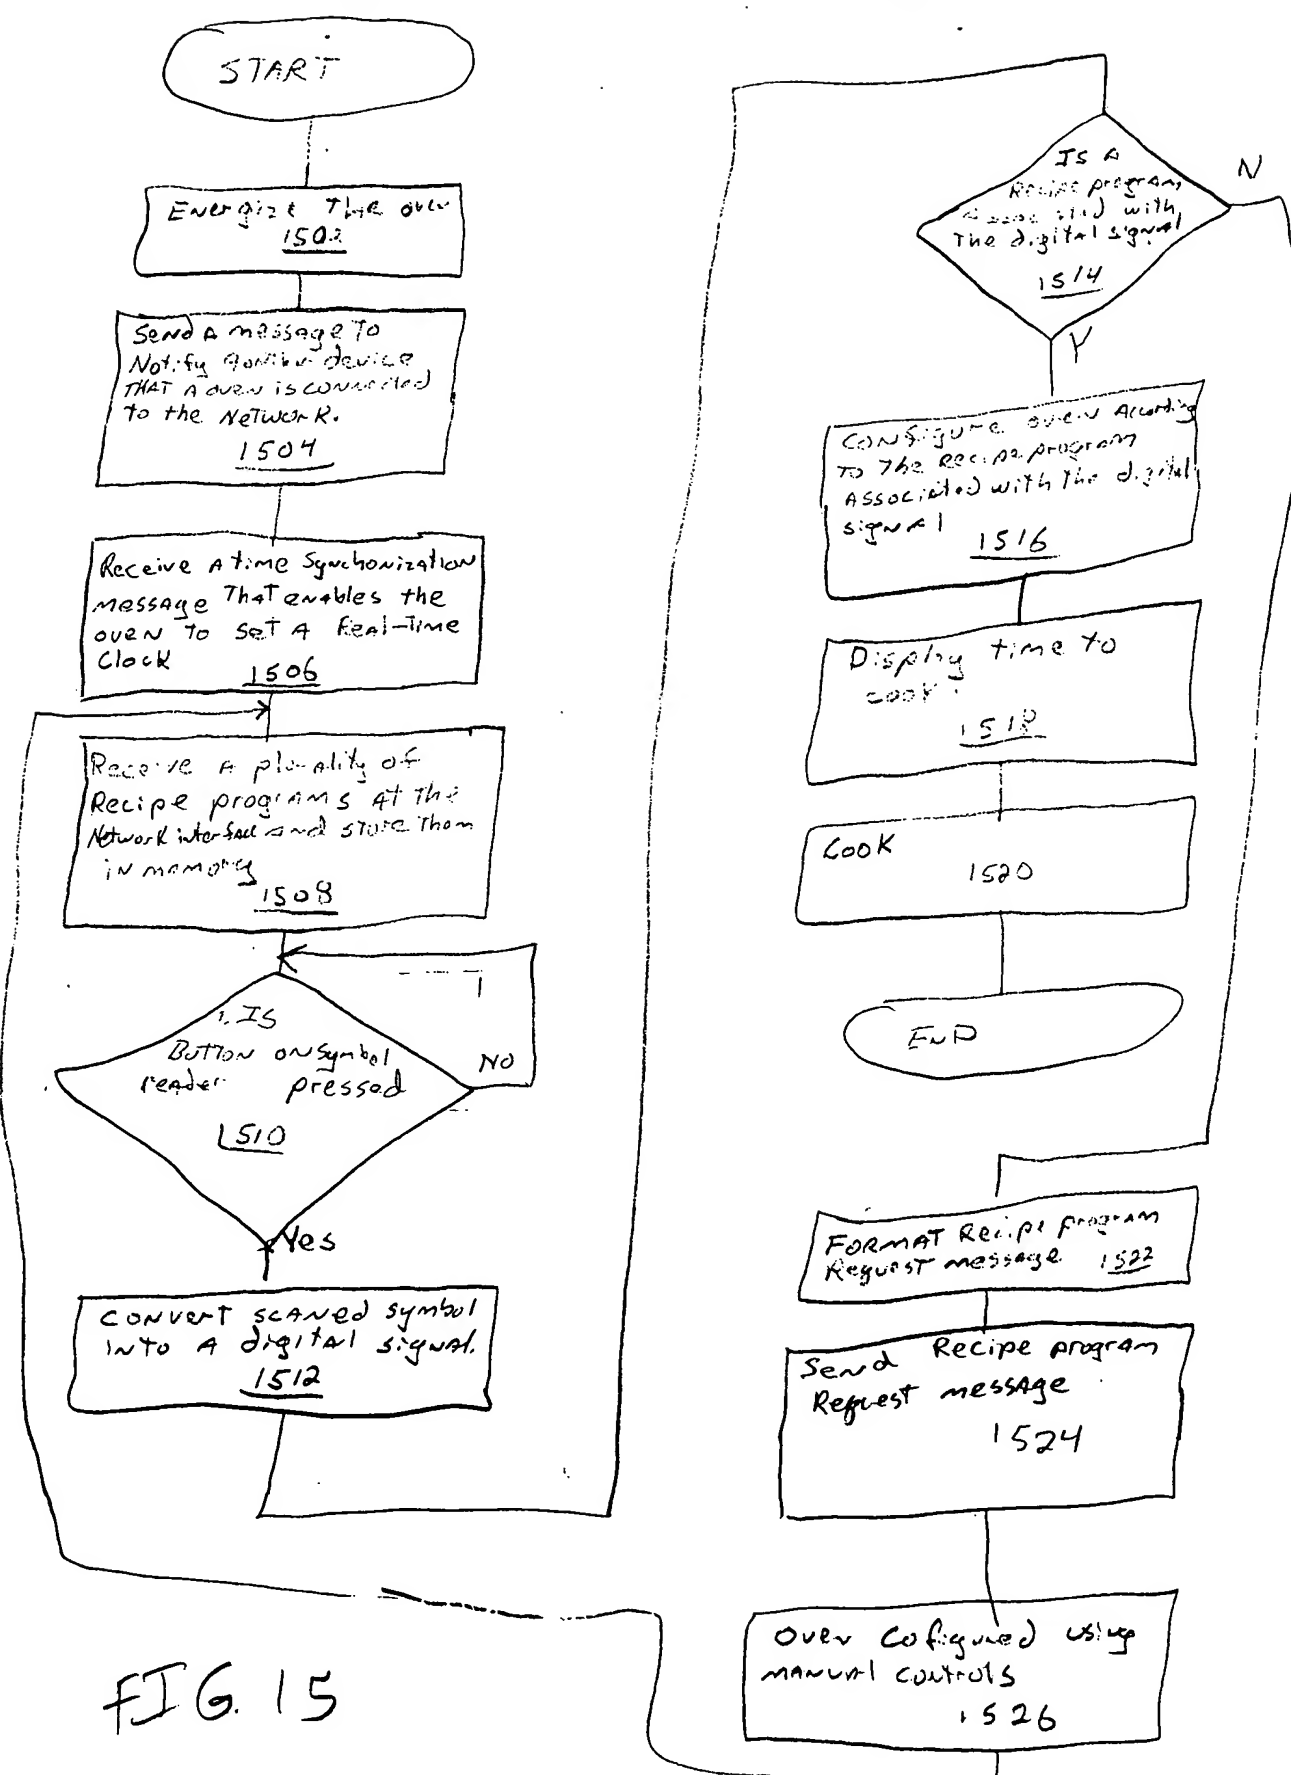 START
Energize The oven
1502
Send A message To
Notify another device
THAT A oven is connected
to the Network.
1504
Receive A time Synchonization
message That enables the
oven to set A Real-Time
Clock
1506
Receive A plurality of
Recipe programs At The
Network interface and store Them
in memory
1508
Is
Button on symbol
reader pressed
1510
NO
Yes
Convert scaned symbol
into A digital signal.
1512
FIG. 15
Is A
Recipe program
Associated with
The digital signal
1514
N
Y
Configure oven According
To The Recipe program
Associated with The digital
signal
1516
Display time to
cook.
1518
Cook
1520
END
FORMAT Recipe program
Request message 1522
Send Recipe program
Request message
1524
Oven Cofigured using
MANUAl Controls
1526